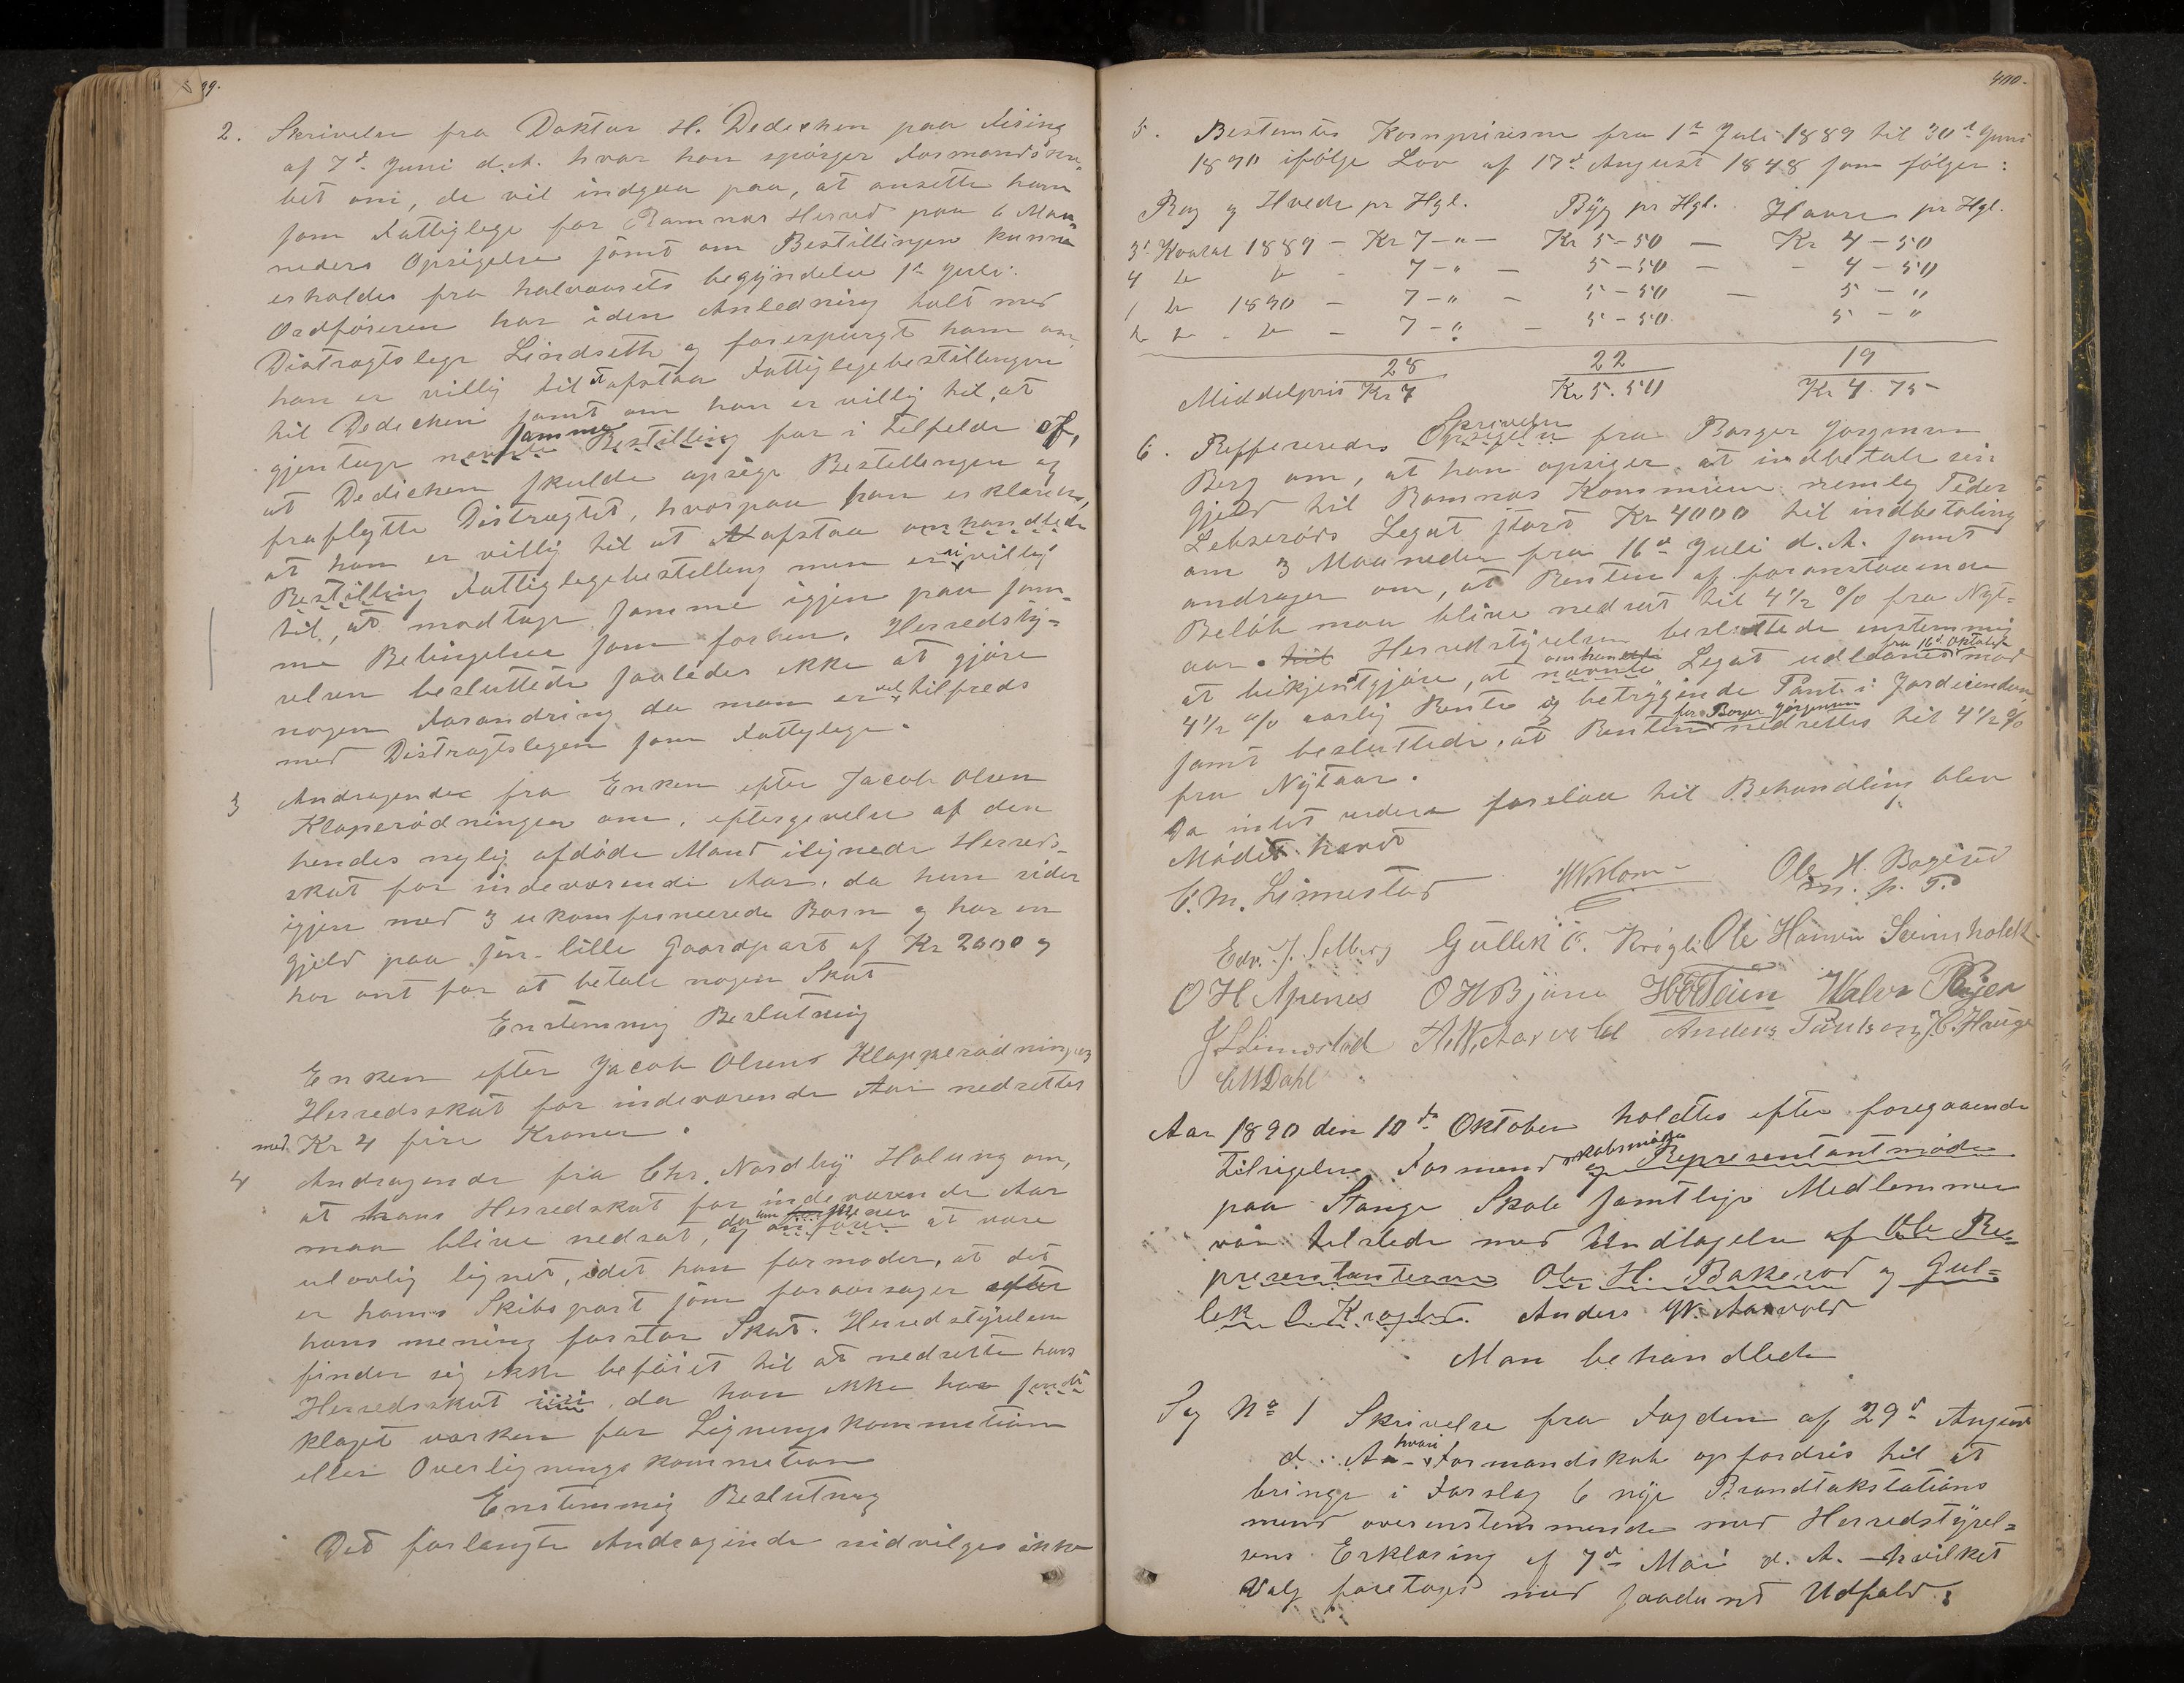 399.
2. Skrivelse fra Doktor H. Dedichen paa Fising
af 7d Juni d.A. hvor han spörger Formandska-
bet om, de vil indgaa paa, at ansette ham
som Fattiglege for Ramnes Herred paa 6 Maa-
neders Opsigelse samt om Bestillingen kunne
erholdes fra halvaarets begyndelse 1ste Juli.
Ordföreren har iden Anledning talt med
Distragtslege Lindseth og forespurgt ham om
han er villig til at afstaa Fattiglegebestillingen
til Dedichen samt om han er villig til, at
gjentage nævnte samme Bestilling for i Tilfelde af,
at Dedichen skulde opsige Bestillingen og
fraflytte Distragtet, hvorpaa han erklærer,
at han er villig til at afstaa omhandlede
Bestilling Fattiglegebestilling men er ei villig
til, at modtage samme igjen paa sam-
me Betingelser som forhen. Herredsty-
relsen besluttede saaledes ikke at gjöre
nogen Forandring da man er vel tilfreds
med Distragtslegen som Fattiglege.
3 Andragende fra Enken efter Jacob Olsen
Klaperödningen om, eftergivelse af den
hendes nylig afdöde Mand ilignede Herreds-
skat for indeværende Aar, da hun sider
igjen med 3 ukomfirmerede Barn og har en
Gjeld paa sin lille Gaardpart af Kr 2000 og
har ont for at betale nogen Skat
Enstemmig Beslutning
Enken efter Jacob Olsens Klapperödningen
Herredsskat for indeværende Aar nedsettes
med Kr 4 fire Kroner.
4 Andragende fra Chr. Nordby Holung om,
at hans Herredskat for indeværende Aar
maa blive nedsat, da han og anförer at være
ulovlig lignet, idet han formoder, at det
er hans Skibspart som foraarsager efter
hans mening forstor Skat. Herredstyrelsen
finder sig ikke beföiet til at nedsette hans
Herredsskat, da han ikke har
klaget værken for Ligningskommetion
eller Overligningskommetion
Enstemmig Beslutning
Det forlangte Andragende indvilges ikke
400.
5. Bestemtes Kornpriserne fra 1ste Juli 1889 til 30te Juni
1890 ifölge Lov af 17d August 1848 som fölger:
Rug og Hvede pr Hgl. Byg pr Hgl. Havre pr Hgl.
3d Kvartal 1889 - Kr 7-"- Kr 5-50 - Kr 4-50
4 do do - 7-" - 5-50 - - 4-50
1 do 1890 - 7-" - 5-50 - 5-"
2 do - do - 7-" - 5-50 5-"
28 22 19
Middelpris Kr 7 Kr 5.50 Kr 4.75
6. Reffereredes Opsigelse Skrivelse fra Borger Jörgensen
Berg om, at han opsiger at indbetale sin
Gjeld til Ramnes Kommune nemlig Peder
Lebseröds Legat stort Kr 4000 til indbetaling
om 3 Maaneder fra 16de Juli d.A. samt
andrager om, at Renten af foranstaaende
Belöb maa blive nedsat til 4½ % fra Nyt-
aar. til Herredstyrelsen besluttede enstemmig
at bekjentgjöre, at nævnte omhandlede Legat udlaanes fra 16d Oktober mod
4½ % aarlig Rente og betryggende Pant i Jordeiendom
samt besluttede, at Renten for Borger Jörgensen nedsettes til 4½ %
fra Nytaar.
Da intet videre forelaa til Behandling blev
Mödet hævet
C.M. Linnestad Ole H. Bageröd
m. p. P.
Edv. J. Solberg Gullek O. Krögli Ole Hansen
O H Apenes O H Björe Halvor Böjer
J L Linnestad A.W. Aarvold Anders Paulsen
C M Dahl
Aar 1890 den 10de Oktober holdtes efter foregaaende
Tilsigelse Formendskabsmöde og Representantmöde
paa Stange Skole samtlige Medlemmer
var tilstede med Undtagelse af Ole Re-
presentanterne Ole H. Bakeröd og Gul-
lek O Kroglid. Anders W. Aarvold
Man behandlede
Sag No 1 Skrivelse fra Fogden af 29d August
d. A- hvori Formandskab opfordres til at
bringe i Forslag 6 nye Brandtakstations
mend overenstemmende med Herredstyrel-
sens Erklæring af 7de Mai d. A. - hvilket
Valg foretoges med saadant Udfald: